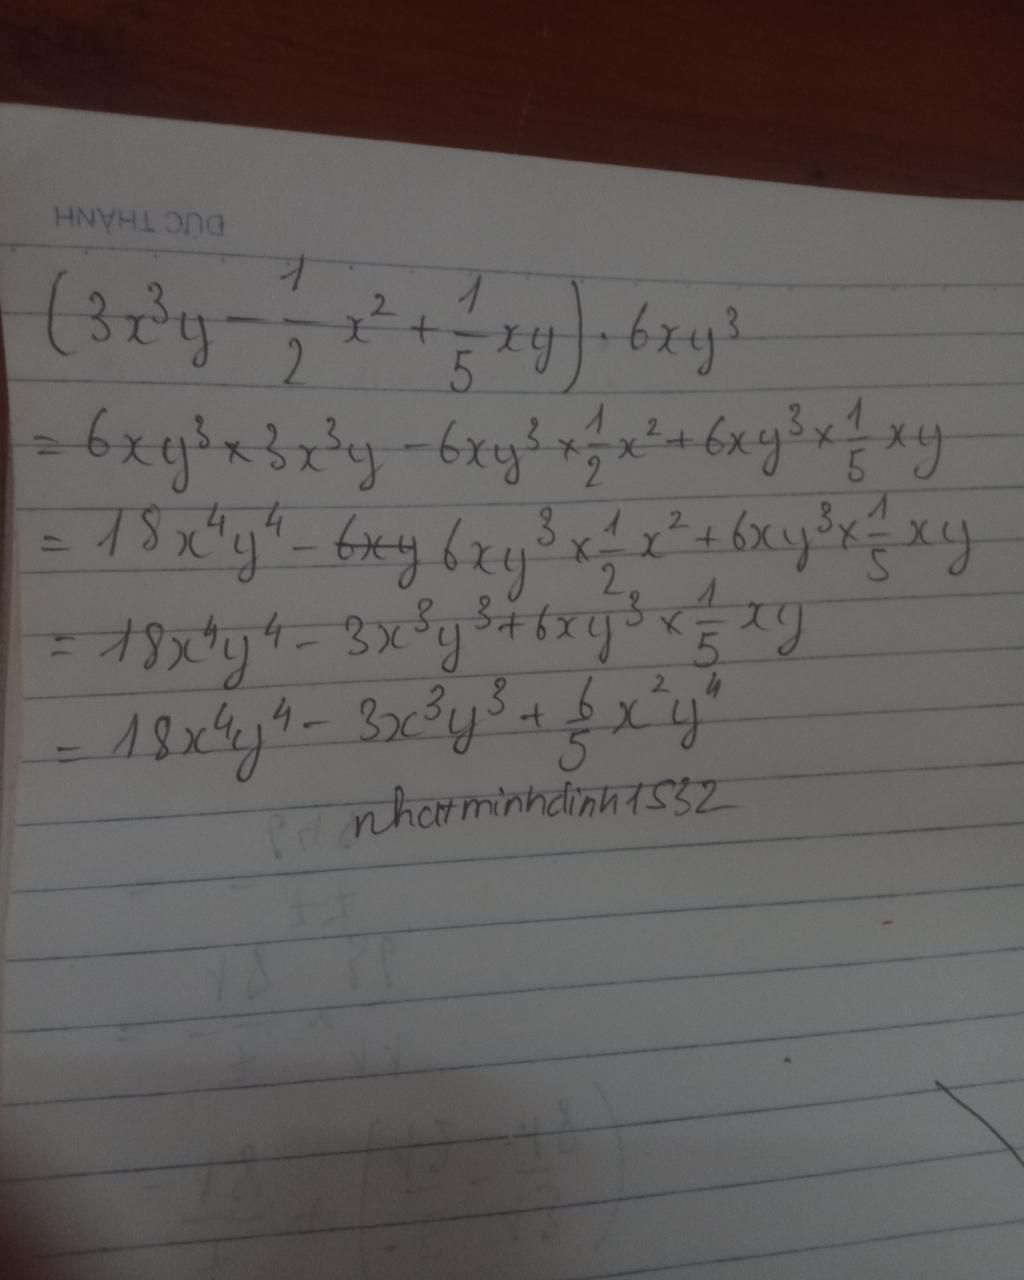 ĐỨC THÀNH
(3x³y - 1/2 x² + 1/5 xy) . 6xy³
= 6xy³ × 3x³y - 6xy³ × 1/2 x² + 6xy³ × 1/5 xy
= 18x⁴y⁴ - 6xy 6xy³ × 1/2 x² + 6xy³ × 1/5 xy
= 18x⁴y⁴ - 3x³y³ + 6xy³ × 1/5 xy
= 18x⁴y⁴ - 3x³y³ + 6/5 x²y⁴
nhatminhdinh1532